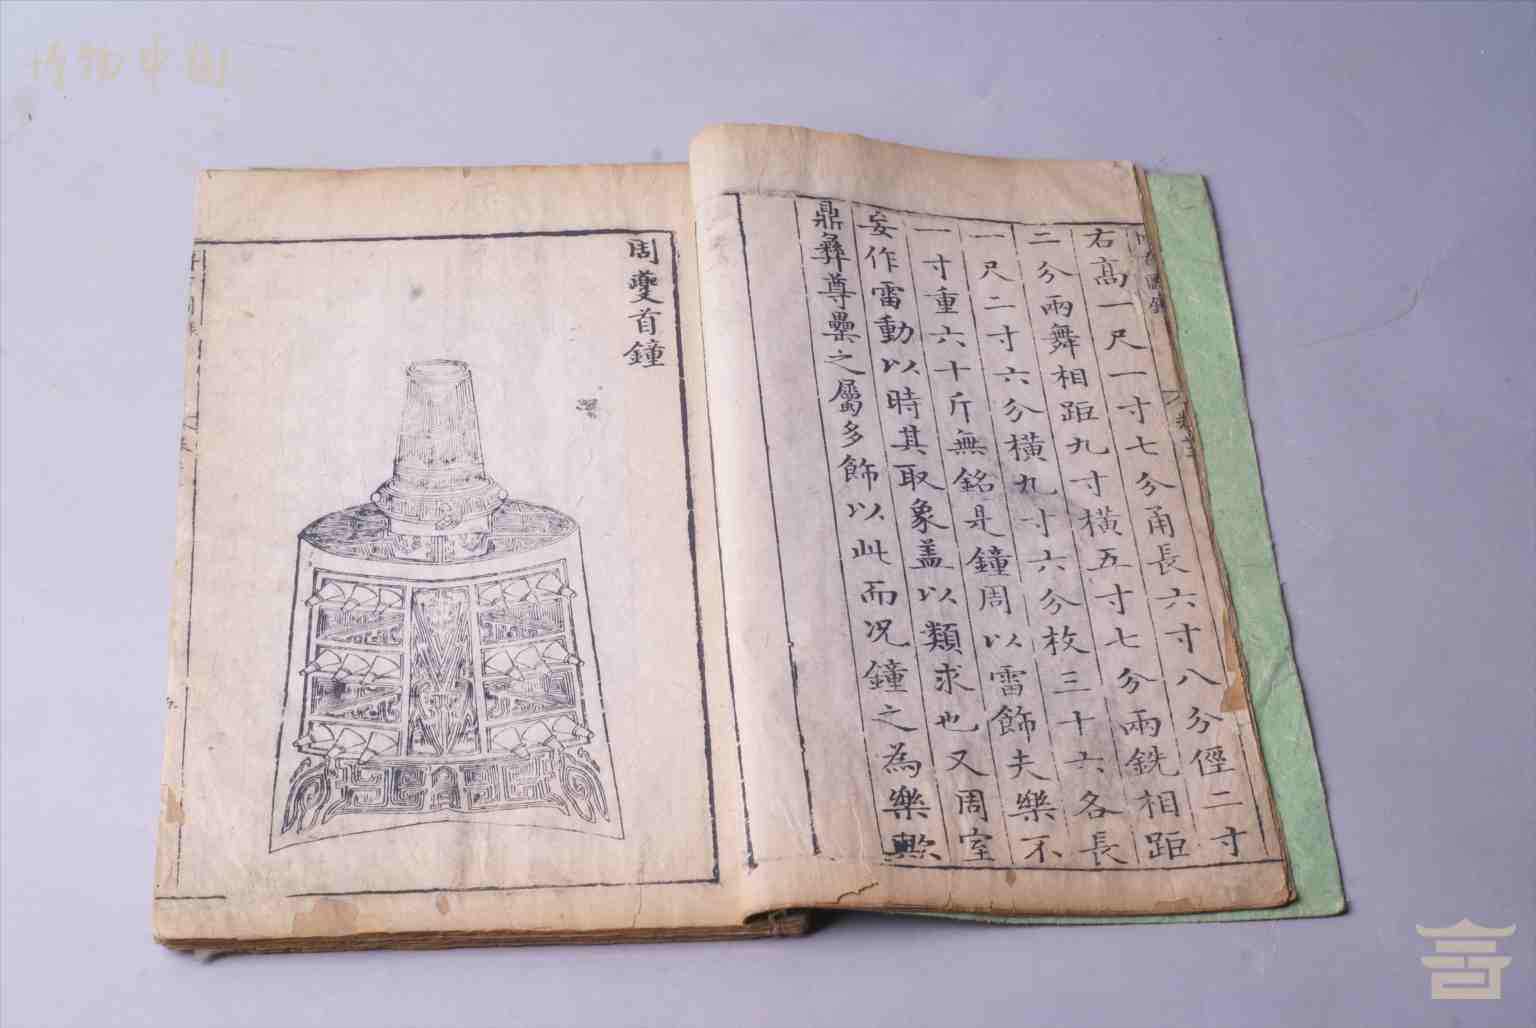 右高一尺一寸七分甬長六寸八分徑二寸
二分兩舞相距九寸橫五寸七分兩銑相距
一尺二寸六分橫九寸六分枚三十六各長
一寸重六十斤無銘是鐘周以雷飾夫樂不
妄作雷動以時其取象盖以類求也又周室
鼎彝尊罍之屬多飾以此而况鐘之為樂歟
周夔首鐘
博物中国